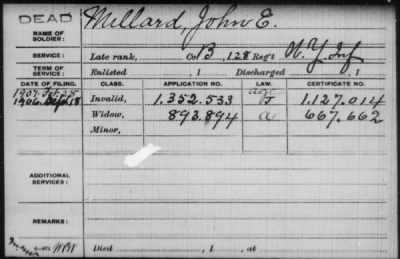 DEAD
NAME OF SOLDIER: Millard, John E.
SERVICE: Late rank, Co B, 128 Reg't N.Y. Inf
TERM OF SERVICE: Enlisted , 1 Discharged , 1
DATE OF FILING. CLASS. APPLICATION NO. LAW. CERTIFICATE NO.
age
1907. Feb. 25 Invalid, 1.352.533 1.127.014
1906. Sep. 18 Widow, 893.894 a 667.662
Minor,
ADDITIONAL SERVICES:
REMARKS:
Died , 1 , at